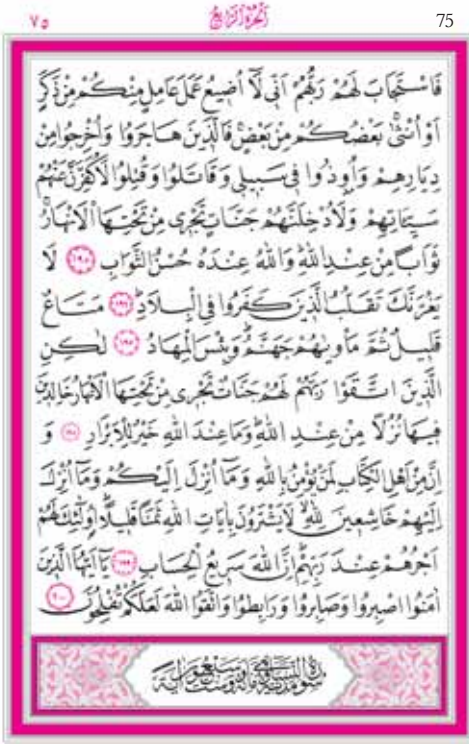 ٧٥ الجزؤ الرابع 75
فَاسْتَجَابَ لَهُمْ رَبُّهُمْ اَنّ۪ي لَٓا اُض۪يعُ عَمَلَ عَامِلٍ مِنْكُمْ مِنْ ذَكَرٍ
اَوْ اُنْثٰىۚ بَعْضُكُمْ مِنْ بَعْضٍۚ فَالَّذ۪ينَ هَاجَرُوا وَاُخْرِجُوا مِنْ
دِيَارِهِمْ وَاُو۫ذُوا ف۪ي سَب۪يل۪ي وَقَاتَلُوا وَقُتِلُوا لَاُكَفِّرَنَّ عَنْهُمْ
سَيِّـَٔاتِهِمْ وَلَاُدْخِلَنَّهُمْ جَنَّاتٍ تَجْر۪ي مِنْ تَحْتِهَا الْاَنْهَارُۚ
ثَوَابًا مِنْ عِنْدِ اللّٰهِۜ وَاللّٰهُ عِنْدَهُ حُسْنُ الثَّوَابِ ﴿١٩٥﴾ لَا
يَغُرَّنَّكَ تَقَلُّبُ الَّذ۪ينَ كَفَرُوا فِي الْبِلَادِۜ ﴿١٩٦﴾ مَتَاعٌ
قَل۪يلٌ ثُمَّ مَأْوٰيهُمْ جَهَنَّمُۜ وَبِئْسَ الْمِهَادُ ﴿١٩٧﴾ لٰكِنِ
الَّذ۪ينَ اتَّقَوْا رَبَّهُمْ لَهُمْ جَنَّاتٌ تَجْر۪ي مِنْ تَحْتِهَا الْاَنْهَارُ خَالِد۪ينَ
ف۪يهَا نُزُلًا مِنْ عِنْدِ اللّٰهِۜ وَمَا عِنْدَ اللّٰهِ خَيْرٌ لِلْاَبْرَارِ ﴿١٩٨﴾ وَ
اِنَّ مِنْ اَهْلِ الْكِتَابِ لَمَنْ يُؤْمِنُ بِاللّٰهِ وَمَٓا اُنْزِلَ اِلَيْكُمْ وَمَٓا اُنْزِلَ
اِلَيْهِمْ خَاشِع۪ينَ لِلّٰهِۙ لَا يَشْتَرُونَ بِاٰيَاتِ اللّٰهِ ثَمَنًا قَل۪يلًاۜ اُو۬لٰٓئِكَ لَهُمْ
اَجْرُهُمْ عِنْدَ رَبِّهِمْۜ اِنَّ اللّٰهَ سَر۪يعُ الْحِسَابِ ﴿١٩٩﴾ يَٓا اَيُّهَا الَّذ۪ينَ
اٰمَنُوا اصْبِرُوا وَصَابِرُوا وَرَابِطُوا وَاتَّقُوا اللّٰهَ لَعَلَّكُمْ تُفْلِحُونَ ﴿٢٠٠﴾
سورة النساء مدنية وهي مائة وست وسبعون اية